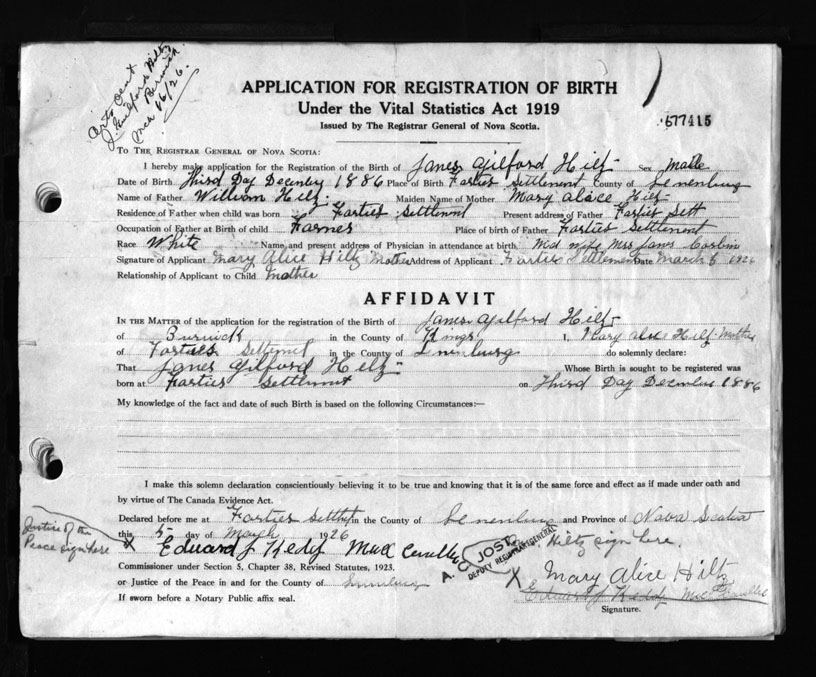 J. Guilford Hiltz
Berwick
Mar 16/26.
APPLICATION FOR REGISTRATION OF BIRTH
Under the Vital Statistics Act 1919
Issued by The Registrar General of Nova Scotia.
577415
To The Registrar General of Nova Scotia:
I hereby make application for the Registration of the Birth of James Gilford Hilz Sex Male
Date of Birth Third Day December 1886 Place of Birth Forties Settlement County of Lenenburg
Name of Father William Hilz. Maiden Name of Mother Mary Alice Hilz
Residence of Father when child was born Forties Settlment Present address of Father Forties Sett
Occupation of Father at Birth of child Farmer Place of birth of Father Forties Settlement
Race White Name and present address of Physician in attendance at birth. Mid wife Mrs James
Signature of Applicant Mary Alice Hiltz Mother Address of Applicant Forties Settlement Date March 5 1926
Relationship of Applicant to Child Mother
AFFIDAVIT
In the Matter of the application for the registration of the Birth of James Gilford Hilz
of Burwick in the County of Kings I, Mary Alice Hilz Mother
of Forties Settlment in the County of Lnenburg do solemnly declare:
That James Gilford Hilz Whose Birth is sought to be registered was
born at Forties Settlment on Third Day December 1886
My knowledge of the fact and date of such Birth is based on the following Circumstances:—
I make this solemn declaration conscientiously believing it to be true and knowing that it is of the same force and effect as if made under oath and
by virtue of The Canada Evidence Act.
Declared before me at Forties Settlmt in the County of Lenenburg and Province of Nova Scotia
this 5 day of March 1926
Justice of the
Peace sign here
X Edward J Kedy
A. C. JOST
DEPUTY REGISTRAR GENERAL
Hiltz sign here.
Commissioner under Section 5, Chapter 38, Revised Statutes, 1923.
X Mary Alice Hiltz
or Justice of the Peace in and for the County of Lunenburg
Edward J Kedy
If sworn before a Notary Public affix seal.
Signature.